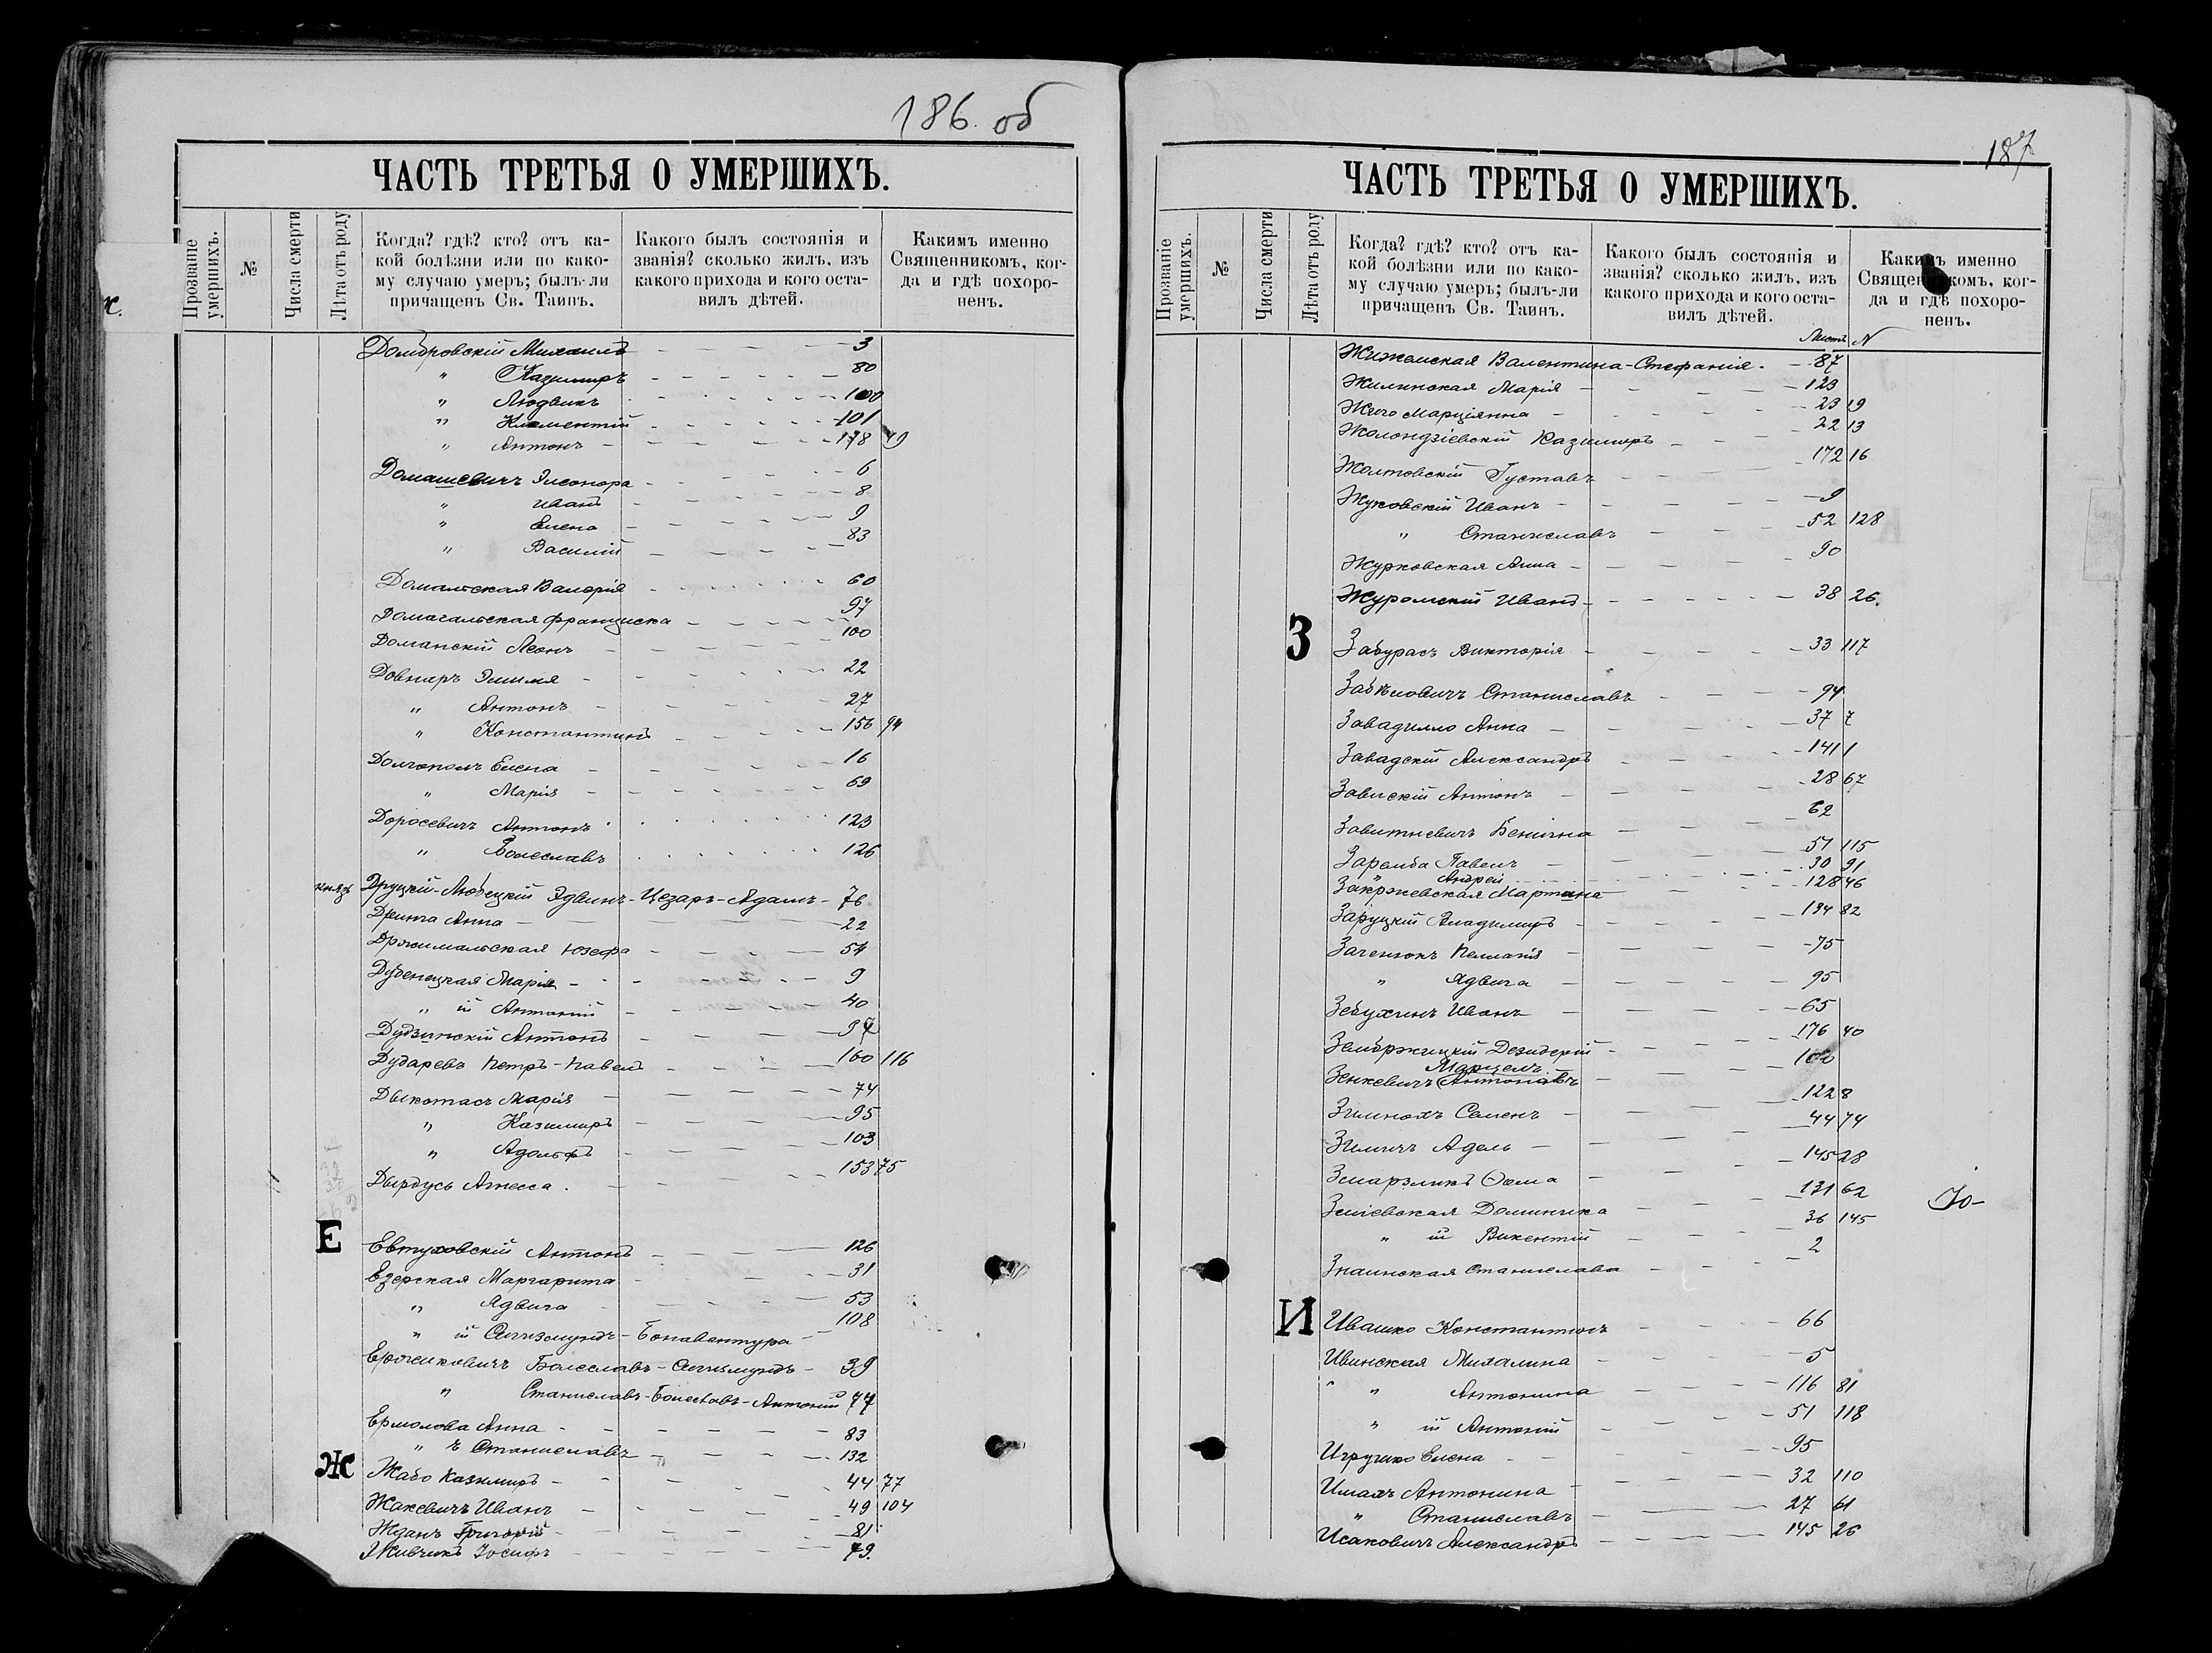 186 об
ЧАСТЬ ТРЕТЬЯ О УМЕРШИХЪ.
Прозваніе умершихъ.
№
Числа смерти
Лѣта отъ роду
Когда? гдѣ? кто? отъ ка-
кой болѣзни или по како-
му случаю умеръ; былъ-ли
причащенъ Св. Таинъ.
Какого былъ состоянія и
званія? сколько жилъ, изъ
какого прихода и кого оста-
вилъ дѣтей.
Какимъ именно
Священникомъ, ког-
да и гдѣ похоро-
ненъ.
Домбровскій Михаилъ 3
" Казимиръ 80
" Людвикъ 100
" Климентій 101
" Антонъ 178 49
Домашевичъ Элеонора 6
" Иванъ 8
" Елена 9
" Василій 83
Доманская Валерія 60
Домагальская Франциска 97
Доманскій Леонъ 100
Довнаръ Эмилія 22
" Антонъ 27
" Константинъ 156 94
Долгополъ Елена 16
" Марія 69
Доросевичъ Антонъ 123
" Болеславъ 126
князь Друцкій-Любецкій Эдвинъ-Цезарь-Адамъ 76
Анна 22
Држимальская Юзефа 54
Дубенецкая Марія 9
" ій Антоній 40
Дудзинскій Антонъ 94
Дударевъ Петръ-Павелъ 160 116
Дыкотасъ Марія 74
" Казимиръ 95
" Адольфъ 103
Дырдусь 153 75
Е
Евтуховскій Антонъ 126
Езерская Маргарита 31
" Ядвига 53
" ій Сигизмундъ-Бонавентура 108
Болеславъ-Сигизмундъ 39
" Станиславъ-Болеславъ-Антоній 77
Ермолова Анна 83
" ъ Станиславъ 132
Ж
Жабо Казимиръ 44 77
Жакевичъ Иванъ 49 104
Жданъ Григорій 81
Живчикъ Іосифъ 79.
187
ЧАСТЬ ТРЕТЬЯ О УМЕРШИХЪ.
Прозваніе умершихъ.
№
Числа смерти
Лѣта отъ роду
Когда? гдѣ? кто? отъ ка-
кой болѣзни или по како-
му случаю умеръ; былъ-ли
причащенъ Св. Таинъ.
Какого былъ состоянія и
званія? сколько жилъ, изъ
какого прихода и кого оста-
вилъ дѣтей.
Какимъ именно
Священникомъ, ког-
да и гдѣ похоро-
ненъ.
Листъ N
Жижемская Валентина-Стефанія. 87
Жилинская Марія 123
Жиго Марціянна 23 19
Жолондзіевскій Казимиръ 22 13
Жолтовскій Густавъ 172 16
Жуковскій Иванъ 9
" Станиславъ 52 128
Журковская Анна 90
Журомскій Иванъ 38 26.
З
Забурасъ Викторія 33 117
Станиславъ 94
Завадилло Анна 37 7
Завадскій Александръ 141 1
Антонъ 28 67
Завитневичъ Бенигна 62
Заремба Павелъ 51 115
" Андрей 30 91
Закржевская Мартина 128 46
Заруцкій Владимиръ 134 82
75
" Ядвига 95
Иванъ 65
Зембржицкій Дезидерій 176 40
Марцелъ
Зенкевичъ Антонавъ 100
Семенъ 122 8
Адель 44 74
Ѳома 145 28
Доминика 131 62
" ій Викентій 36 145
Знаинская Станислава 2
Ю-
И
Ивашко Константинъ 66
Ивинская Михалина 5
" " Антонина 116 81
" ій Антоній 51 118
Игрушко Елена 95
Имахъ Антонина 32 110
" Станиславъ 27 61
Исаковичъ Александръ 145 26